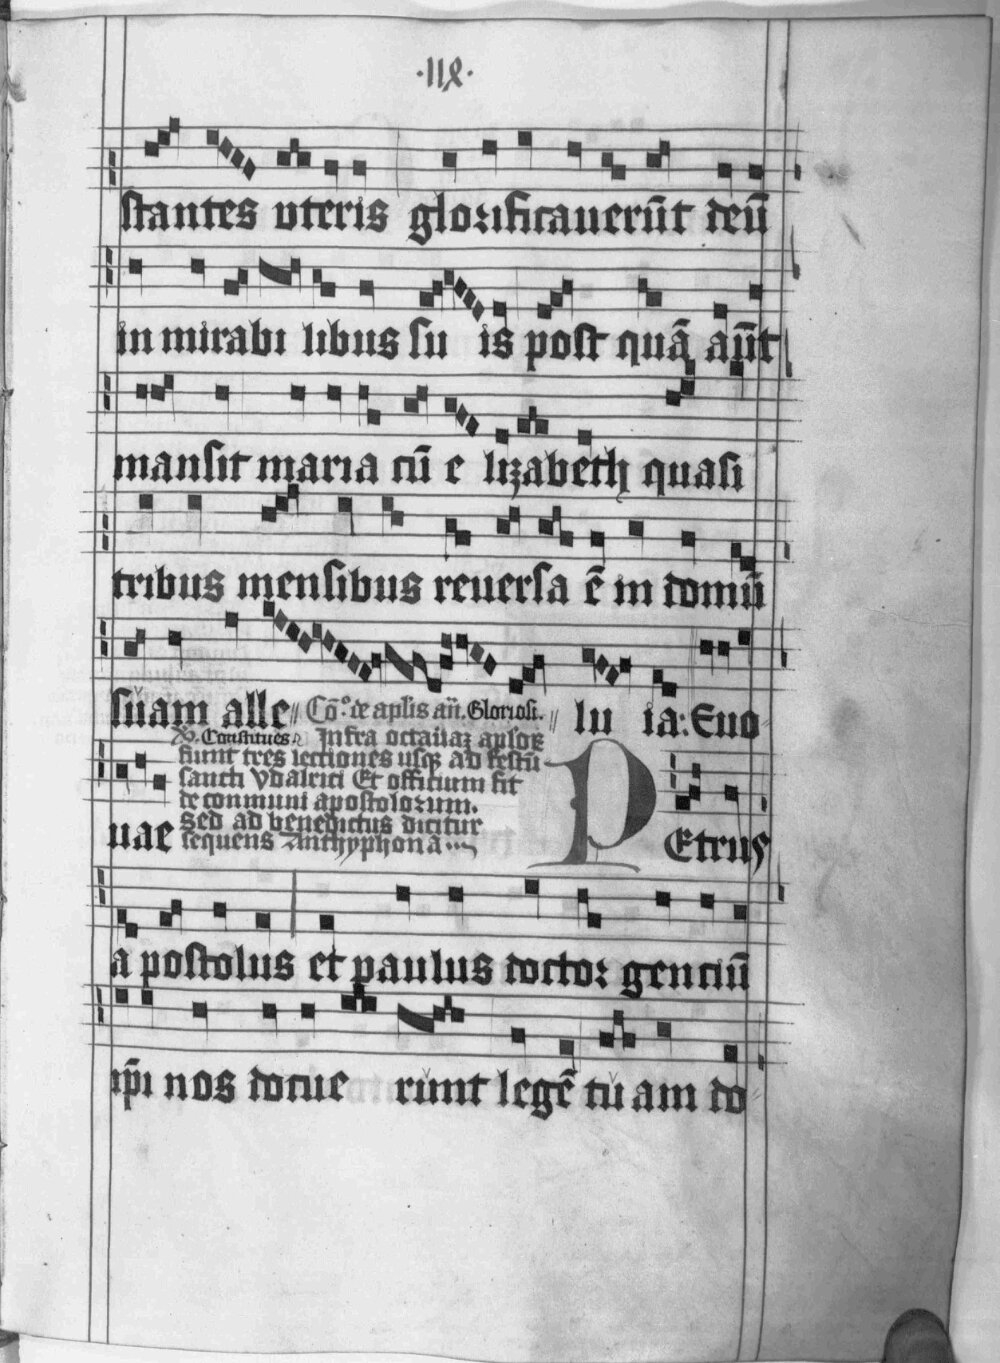 ·118·
stantes vteris glorificauerūt deū
in mirabi libus su is post quā aūt
mansit maria cū e lizabeth quasi
tribus mensibus reuersa ē in domū
suam alle Cō.º de aplis añ. Gloriosi. lu ia: Euo
Constitues. Infra octauaz aplorꝝ
fiunt tres lectiones usqꝫ ad festū
sancti Vdalrici Et officium fit
de conmuni apostolorum.
uae Sed ad benedictus dicitur PEtrus
sequens Anthyphona
a postolus et paulus doctor gentiū
ip̄i nos docue runt legē tu am do